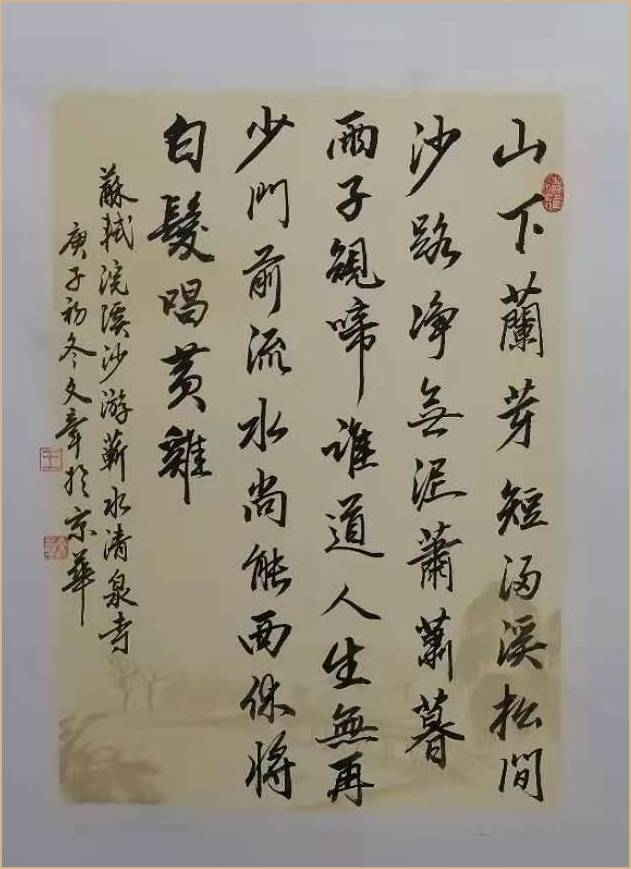 山下蘭芽短浸溪松間
沙路净無泥蕭蕭暮
雨子規啼誰道人生無再
少門前流水尚能西休將
白髮唱黄雞
蘇軾浣溪沙游蘄水清泉寺
庚子初冬文章於京華